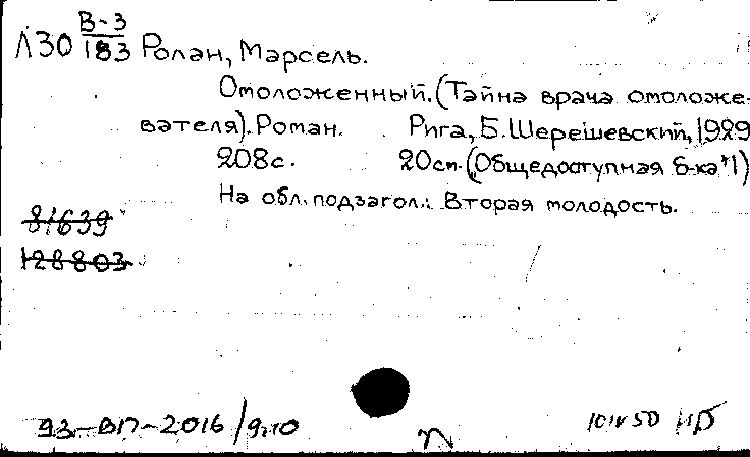 В-3
Л30 183 Ролан, Марсель.
Омоложенный. (Тайна врача омоложе-
вателя). Роман. Рига, Б. Шерешевский, 1929
208с. 20см. (Общедоступная б-ка №1)
На обл. подзагол.: Вторая молодость.
81639
128803
93-ВП-2016/9,10